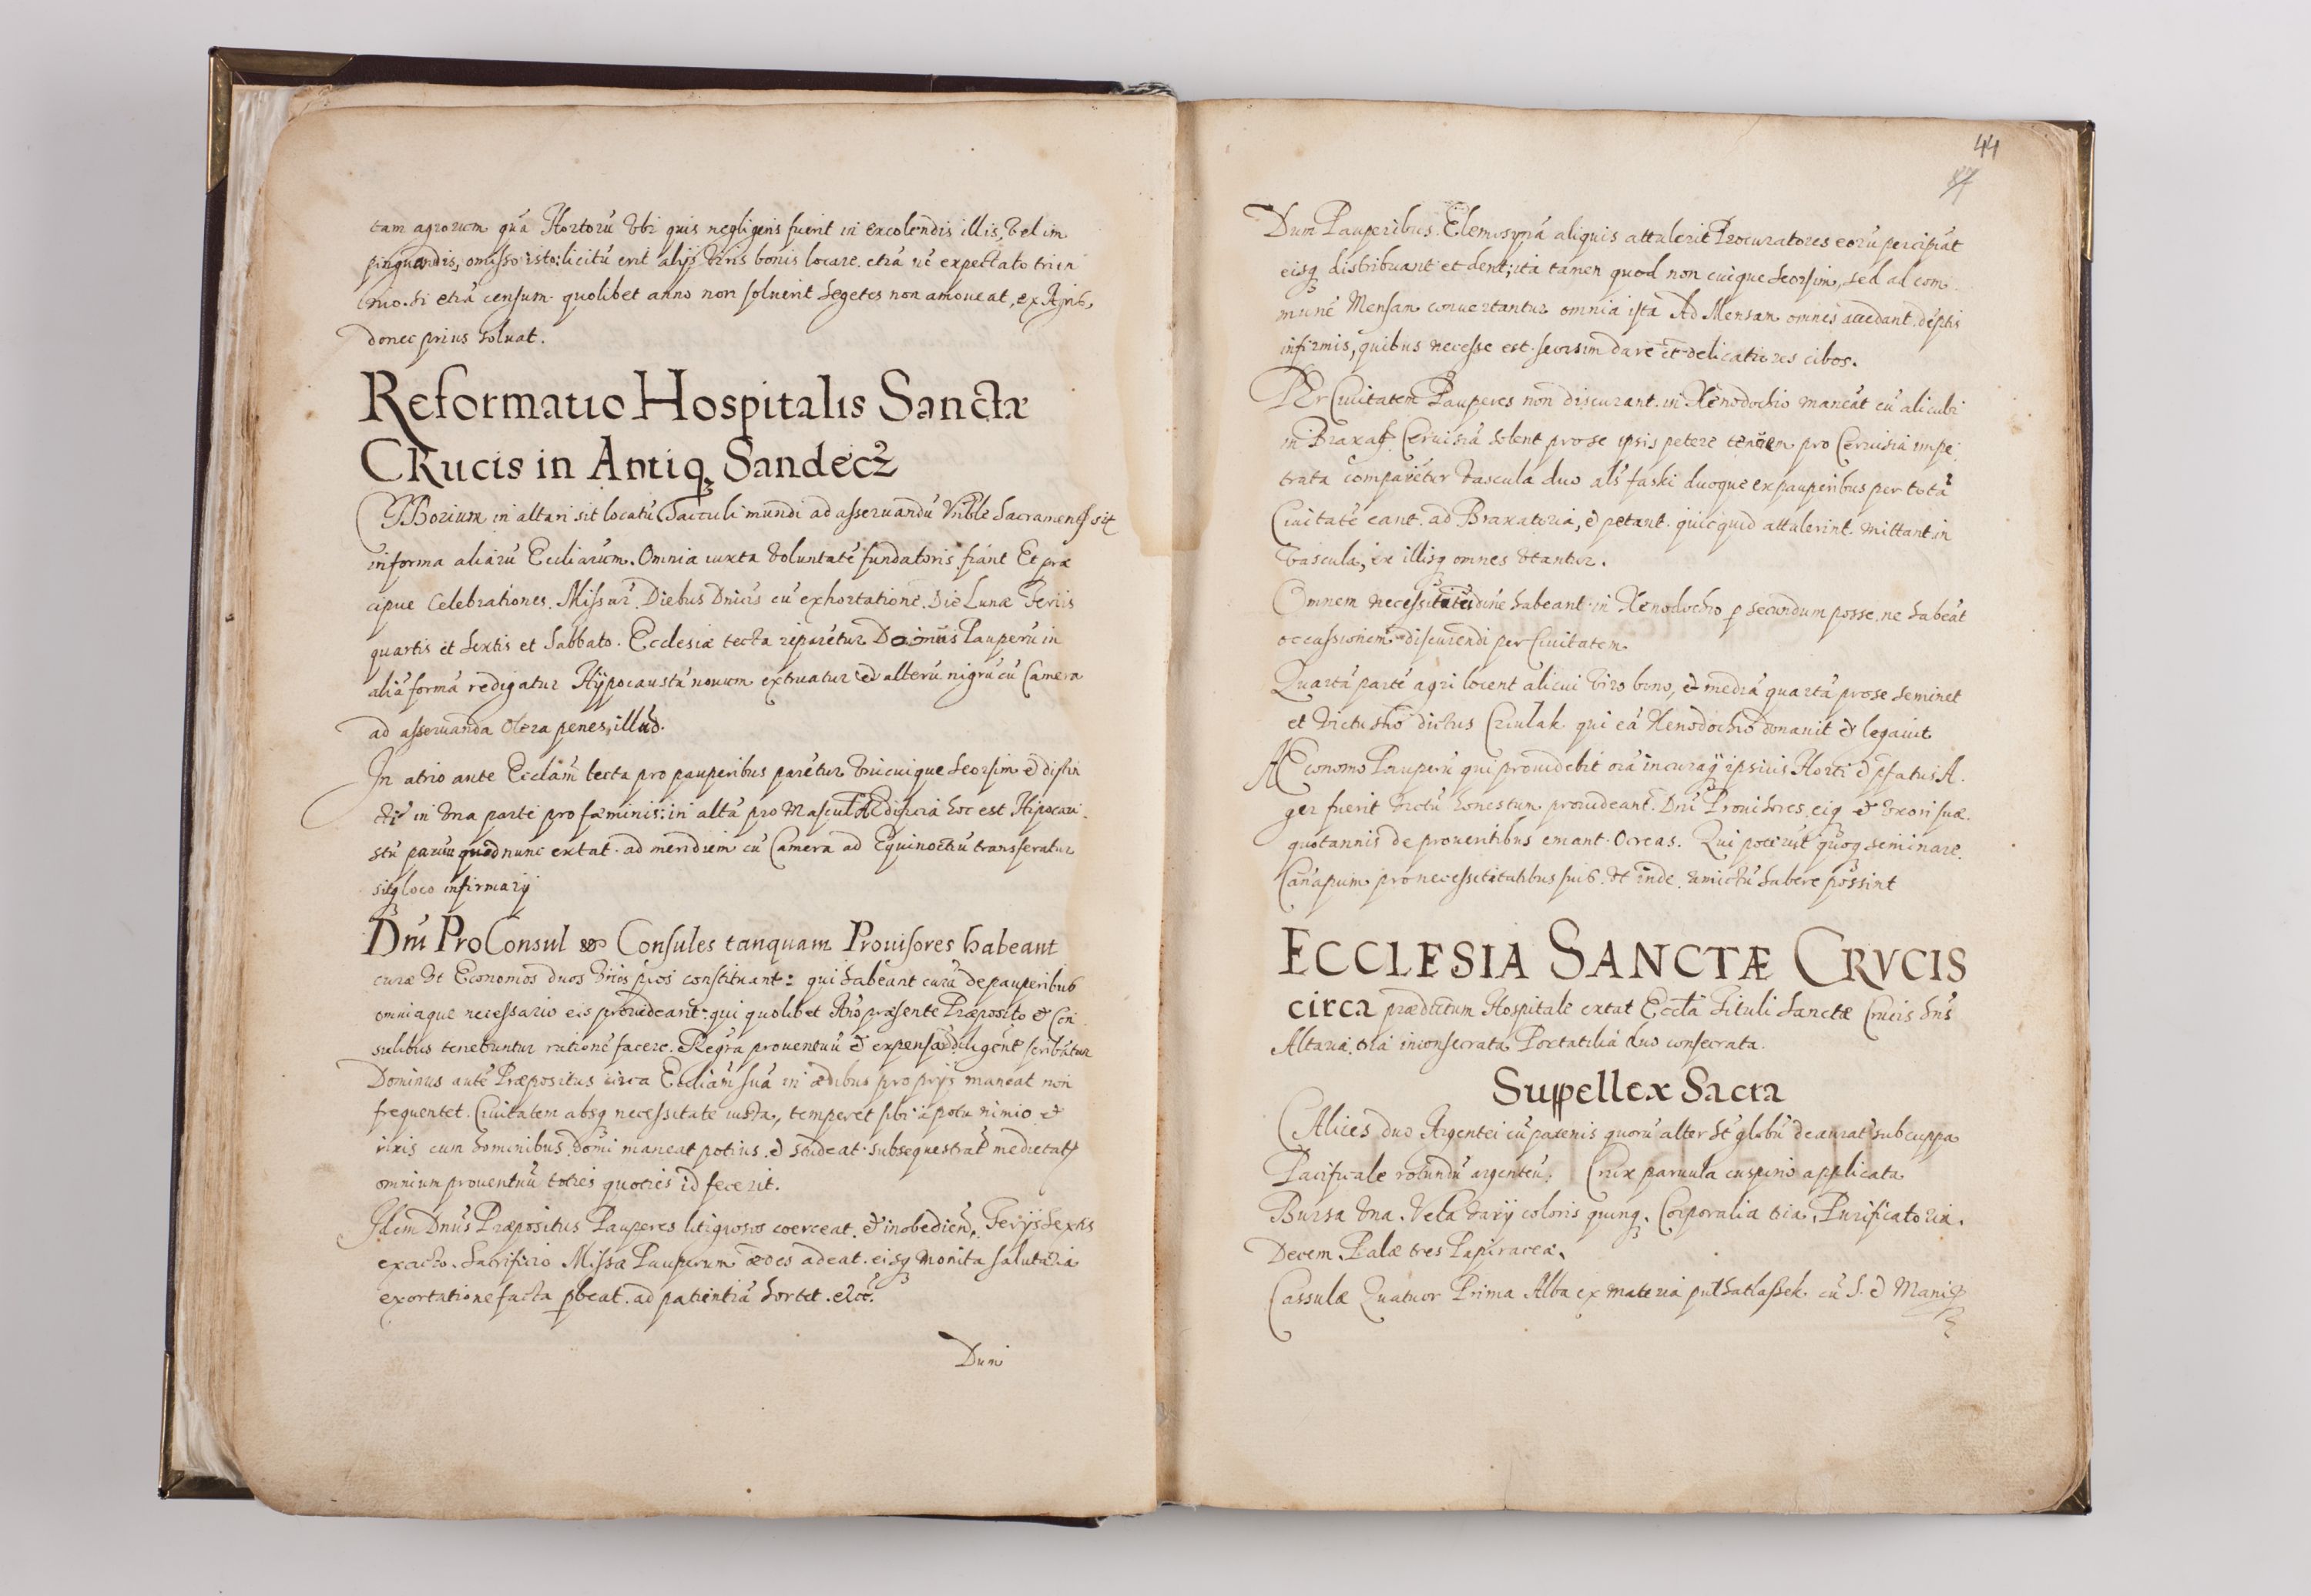 tam agrorum quā Hortorū vbi quis negligens fuerit in excolendis illis, vel im
pinguandis, omisso isto: licitū erit alijs viris bonis locare. etiā nō expectato trien
nio. Si etiā censum quolibet anno non soluerit segetes non amoueat, ex Agris,
donec prius soluat.
Reformatio Hospitalis Sanctæ
CRucis in Antiq. Sandecz
CYborium in altari sit locatū Sacculi mundi ad asseruandū Sacramentū sit
in forma aliarū Eccliarum. Omnia iuxta voluntatē fundatoris fiant Et præ
cipue Celebrationes. Missarū. Diebus Dnicis cū exhortatione. Die Lunæ Feriis
quartis et Sextis et Sabbato. Ecclesiæ tecta reparētur Domus Pauperū in
aliā formā redigatur Hypocaustū nouum extruatur & alterū nigrū cū Camera
ad asseruanda Olera penes illud.
In atrio ante Eccliam lecta pro pauperibus parētur vnicuique Seorsim & distin
ctē in vna parte pro fæminis: in altā pro Mascul Ædificia hoc est Hipocau
stū paruū quod nunc extat ad meridiem cū Camera ad Equinoctiū transferatur
sitq loco infirmarij
Dni ProConsul & Consules tanquam Prouisores habeant
curæ vt Economos duos viros pios constituant: qui habeant curā de pauperibus
omniaque necessario eis prouideant: qui quolibet Año præsente Præposito & Con
sulibus tenebuntur rationē facere. Regra prouentuū & expensarū diligent scribātur
Dominus autē Præpositus circa Eccliam suā in ædibus proprijs maneat non
frequentet Ciuitatem absq necessitate iusta, temperet sibi à potu nimio &
rixis cum hominibus. domi maneat potius. & studeat. subsequestrat medietatis
omnium prouentuū toties quoties id fecerit.
Idem Dnus Præpositus Pauperes litigiosos coerceat. & inobedien. Ferijs Sextis
exacto Sacrificio Missæ Pauperum ædes adeat. eisq monita salutaria
exortatione facta pbeat. ad patientiā hortet. etc.
Dum
44
Dum Pauperibus. Elemosynā aliquis attulerit Procuratores eorū percipiāt
eisq distribuant et dent; ita tamen quod non cuique Seorsim, sed ad com
munē Mensam conuertantur omnia ista Ad Mensam omnes accedant. dēptis
infirmis, quibus necesse est seorsim dare et delicatiores cibos.
PEr Ciuitatem Pauperes non discurant. in Xenodochio maneāt cū alicubi
in Braxat Ceruisiā solent pro se ipsis petere pro Ceruisia impe
trata comparētur vascula duo als faski duoque ex pauperibus per totā
Ciuitatē eant. ad Braxatoria, & petant. quicquid attulerint. Mittant in
vascula, ex illisq omnes vtantur.
Omnem necessitatē habeant in Xenodochio secundum posse. ne habeāt
occassionem discurendi per Ciuitatem.
Quartā partē agri locent alicui viro bono, & mediā quartā pro se seminet
et dictus Cziulak qui eā Xenodochio donauit & legauit
Æconomo Pauperū qui prouidebit ipsius Horti & pfatus A.
ger fuerit victū honestum prouideant. Dni Prouisores eiq & vxori suæ.
quotannis de prouentibus emant Ocreas. Qui poterūt quoq seminare.
Canapum pro necessitatibus suis. vt inde amictū habere possint
ECCLESIA SANCTÆ CRVCIS
circa prædictum Hospitale extat Ecclā Tituli Sanctæ Crucis hns
Altaria tria inconsecrata Portatilia duo consecrata.
Suppellex Sacra
CAlices duo Argentei cū patenis quorū alter ht globū deaurat sub cuppa
Pacificale rotundū argenteū. Crux paruula cuspino applicata
Bursa vna. Vela varij coloris quinq. Corporalia tria. Purificatoria.
Decem. Palæ tres Papiracea.
Cassulæ Quatuor Prima Alba ex materia pulhatlassek cū S. & Manip